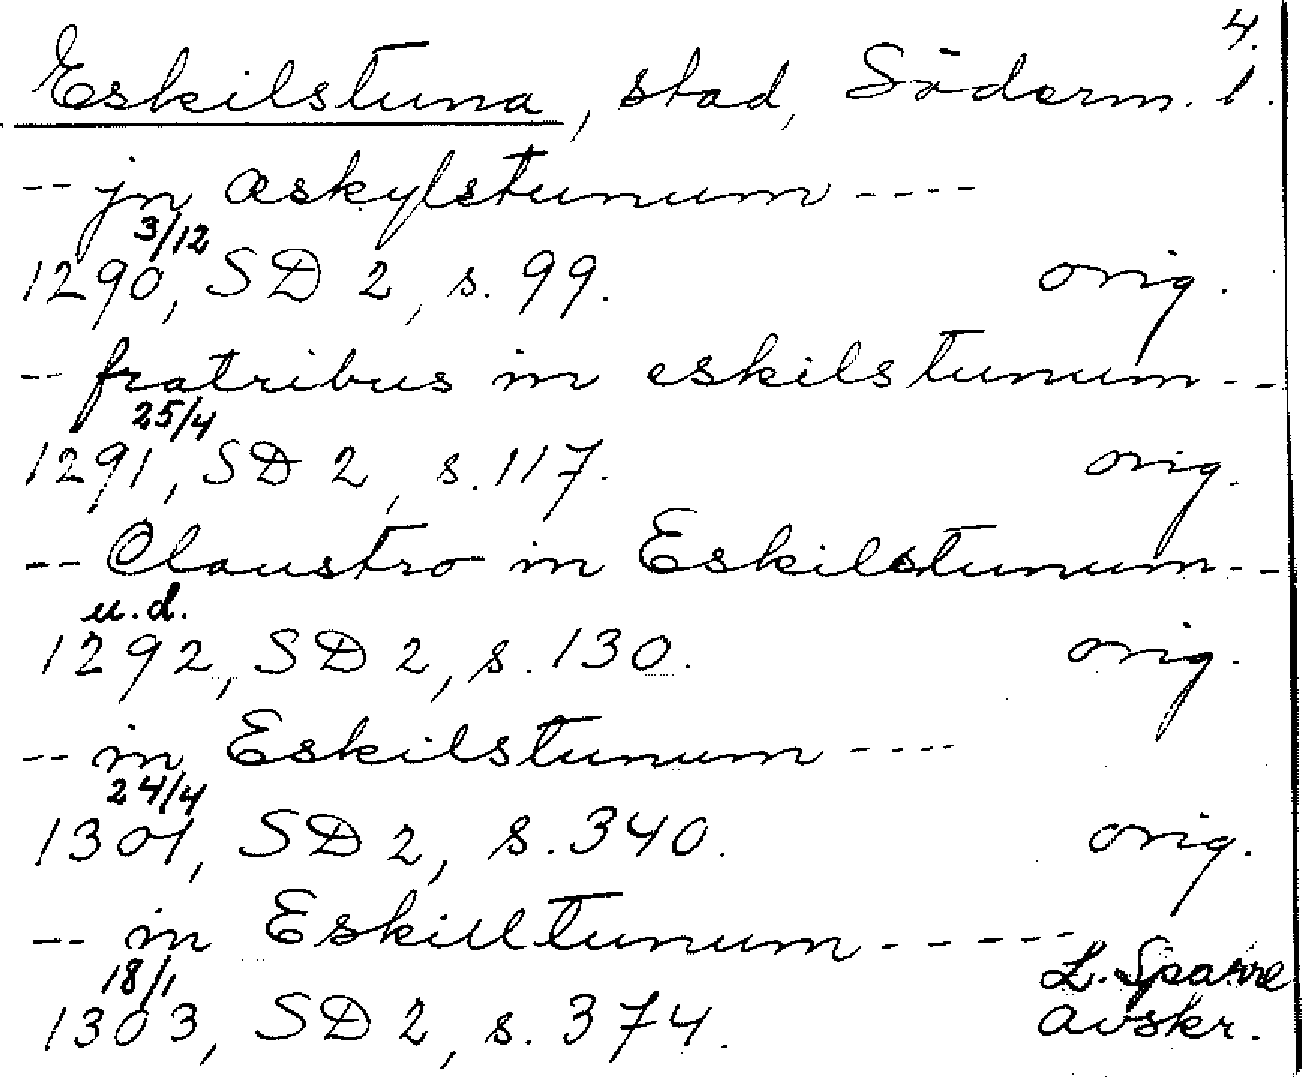 4.
Eskilstuna, stad, Söderm. l.
-- jn æskylstunum ----
3/12
1290, SD 2, s. 99. orig.
-- fratribus in eskilstunum --
25/4
1291, SD 2, s. 117. orig.
-- Claustro in Eskilstunum --
u.d.
1292, SD 2, s. 130. orig.
-- in Eskilstunum ----
24/4
1301, SD 2, s. 340. orig.
-- in Eskilltunum -----
18/1 L. Sparre
1303, SD 2, s. 374. avskr.